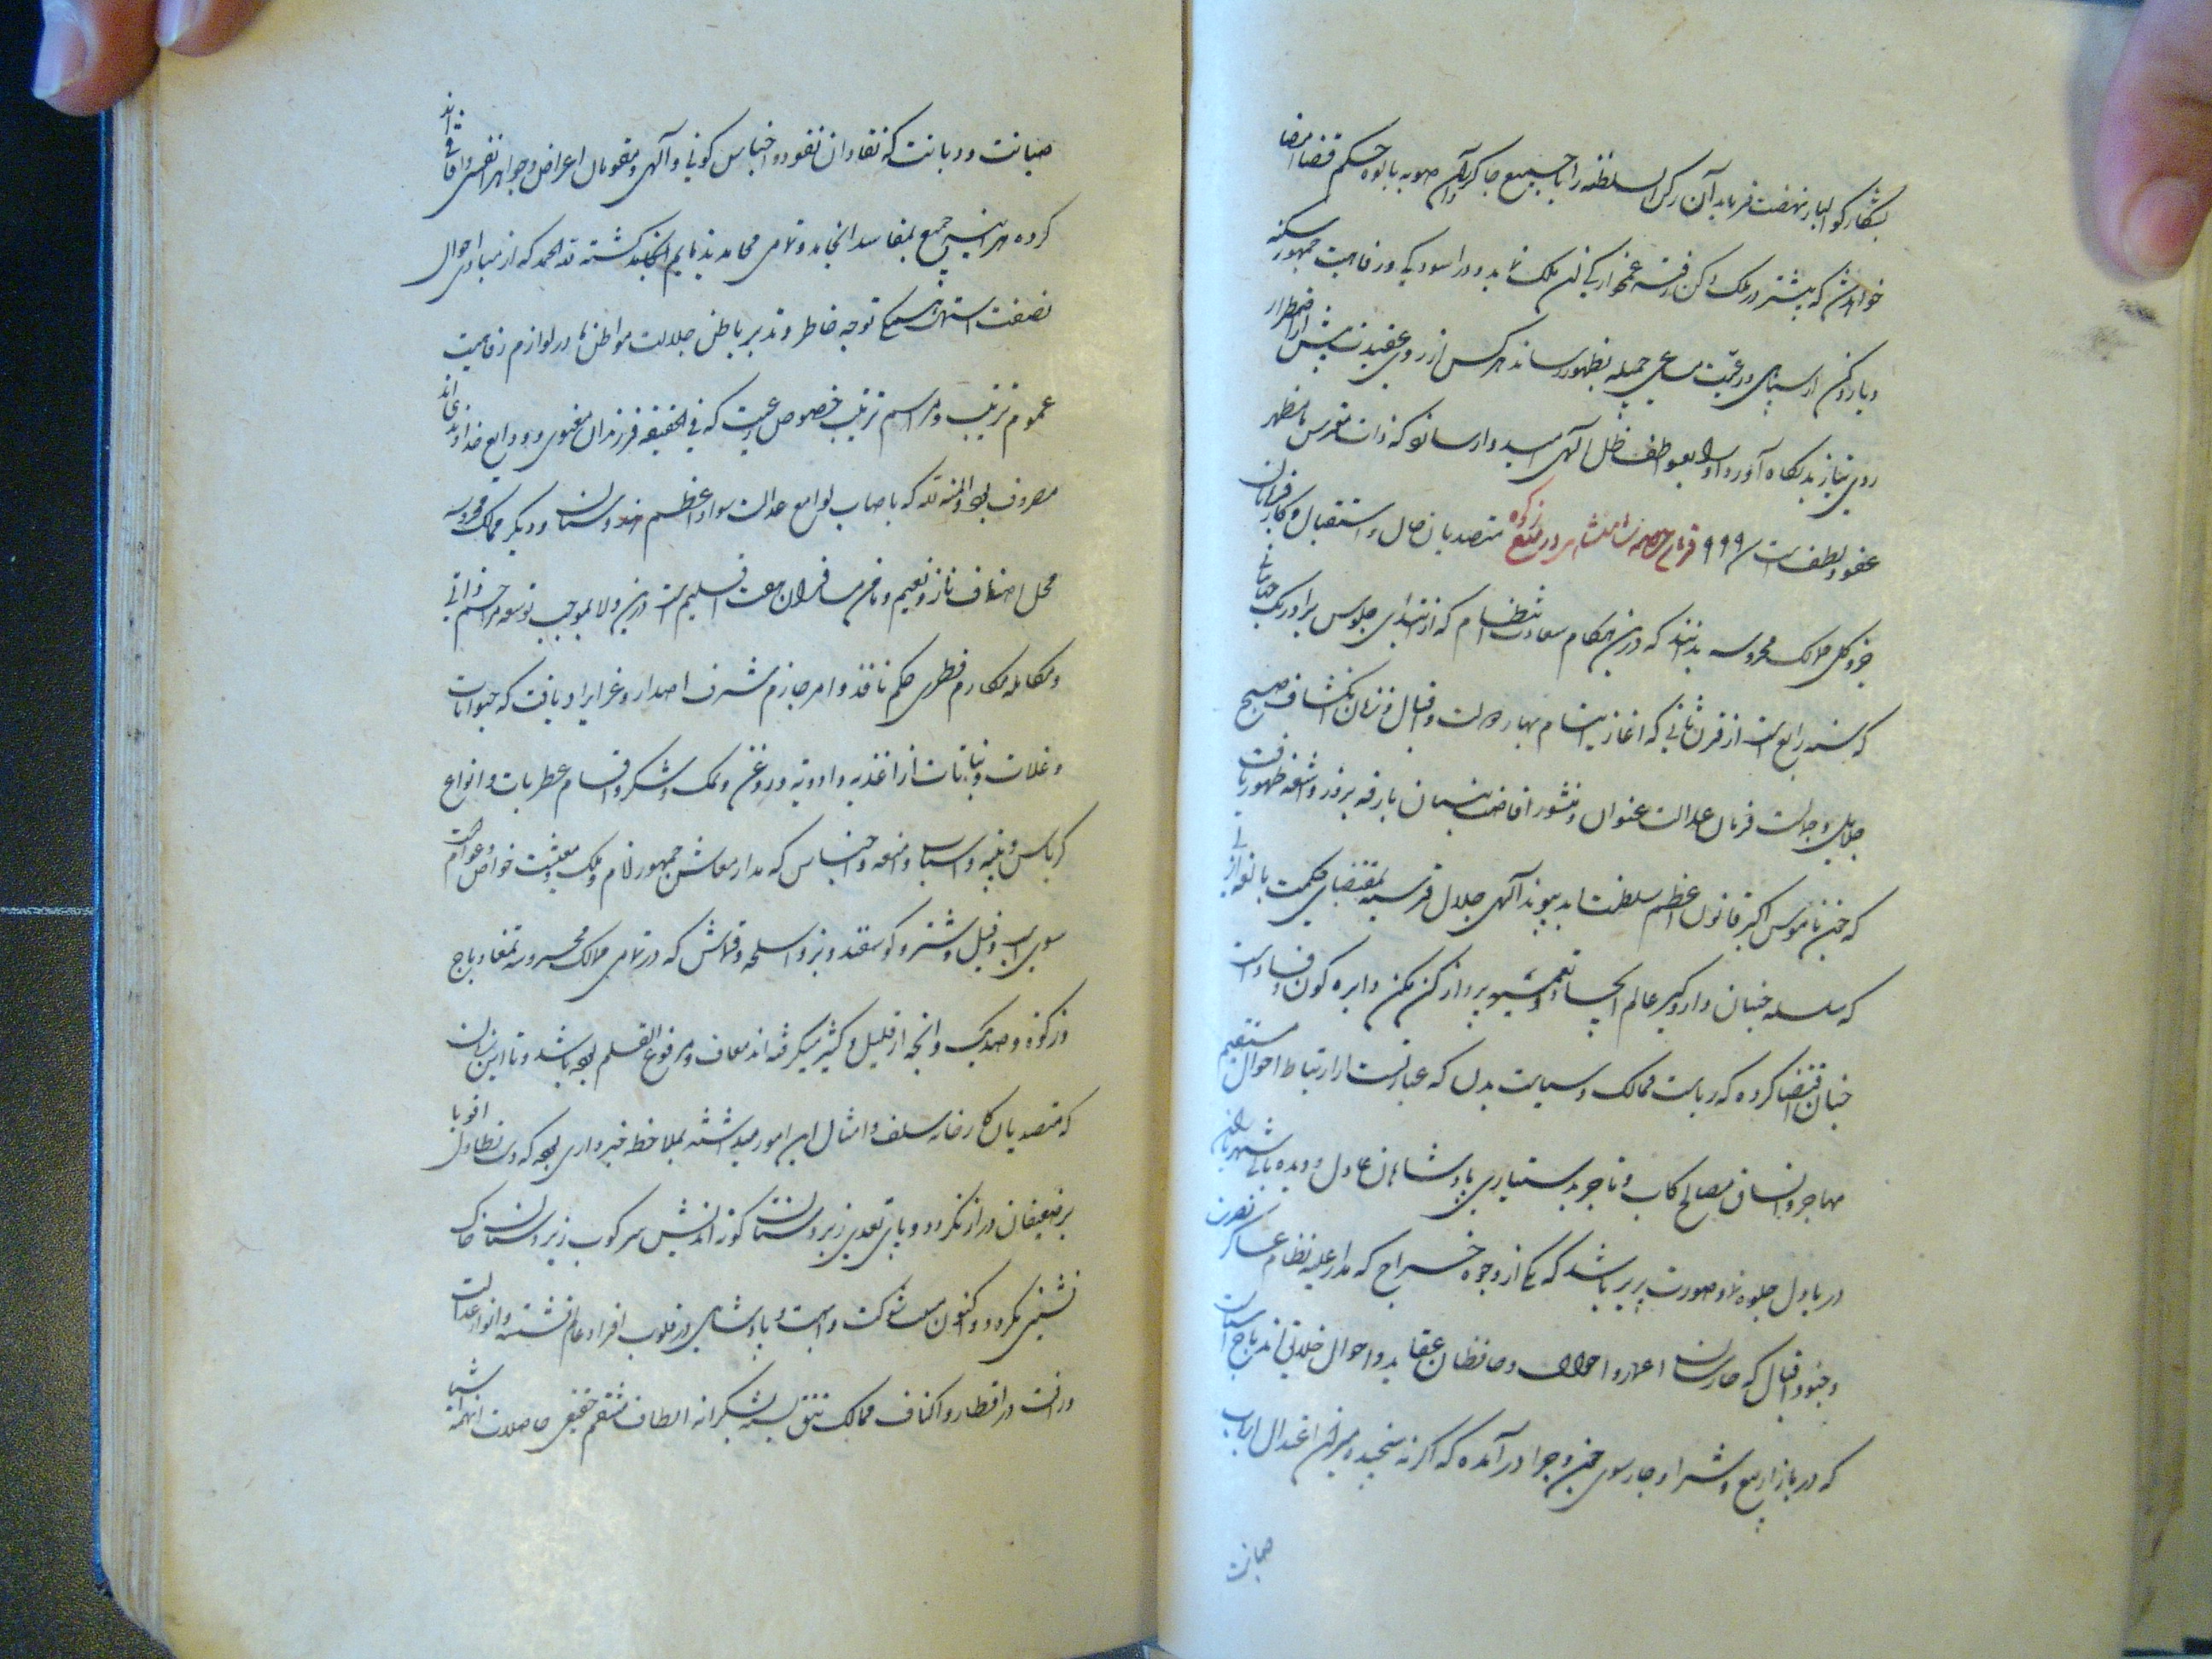 بشکار کوالیار نهضت فرماید آن رکن السلطنه را با جمیع جاکیرداران صوبه بالوه حکم قضا امضا
خواهد شد که بیشتر در ملک دکن رفته غمخواریکی آن ملک نماید و در آسودگی و رفاهیت جمهور سکنه
دیار دکن از سپاهی و رعیت مساعی جمیله بظهور رساند هر کس از روی عقیدت بیش از اضطرار
روی نیاز بدرگاه آورد او را بعواطف ظل آلهی امیدوار سازد که ذات مقدس ما مظهر
عفو و لطف است ۹۹۹ فرمان حضرت شاهنشاهی در منع زکوه متصدیان حال و استقبال و کارفرمایان
جزو کل ممالک محروسه بدانند که درین هنکام سعادت انتظام که از ابتدای جلوس بر اورنک جهانبانی
که سنه رابع است از قرن ثانی که آغاز ابتسام بهار دولت و اقبال و زمان انکشاف صبح
جلال و جلالت فرمان عدالت عنوان و منشور افاضت بنیان بارقه بروز و شعشعه ظهور یافت
که چون ناموس اکبر قانون اعظم سلطنت ابد پیوند آلهی جلال قدسیه بمقتضای حکمت بالغه ازلی
که سلسله جنبان دار و کیر عالم ایجاد و نقش پرداز کن مکن دایره کون و فساد است
چنان اقتضا کرده که ریاست ممالک و سیاست مدن که عبارتست از ارتباط احوال مستقیم
مهاجر و انساق مصالح کاسب و تاجر بدستیاری پادشاهان عادل و دیده بانی شهریاران
دریا دل جلوه نما و صورت پذیر باشد که یکی از وجوه خراج که مدار علیه نظام عساکر نصرت
و جنود اقبال که حارسان اعمار و احوال و حافظان عقاید و احوال خلایق اند باج است
که در بازار بیع و شرا و چارسوی چون و چرا درآمده که اگر نه سنجیده میزان اعتدال ارباب
صیانت
صیانت و دیانت که نقادان نقود و اجناس کونی و آلهی و مقومان اعراض و جواهر انفسی و آفاقی اند
کرده هر آینه جمیع بمفاسد انجامد و تمامی محامد بذمایم انجامد کشته لله الحمد که از مبادی احوال
نصفت اشتمال همکی توجه خاطر و تدبیر باطن جلالت مواطن ما در لوازم رفاهیت
عموم تربیت و مراسم تربیت خصوص رعیت که فی الحقیقه فرزندان معنوی و ودایع خداوندی اند
مصروف بوده و المنه لله که باصابت لوامع عدالت سواد اعظم هندوستان و دیگر ممالک محروسه
محل اصناف ناز و نعیم و مامن مسافران هفت اقلیم است درین ولا بموجب توسعه مراحم ذاتی
و مکامله مکارم فطری حکم نافذ و امر جازم شرف اصدار و عز ایراد یافت که حبوبات
و غلات و نباتات از اغذیه و ادویه و روغن و نمک و شکر و اقسام عطریات و انواع
کرباس و پنبه و اسباب و امتعه و اجناس که مدار معاش جمهور انام و ملک معیشت خواص و عوام است
سوای اسپ و فیل و شتر و کوسفند و بز و اسلحه و قماش که در تمامی ممالک محروسه تمغا و باج
و زکوة و صد یک و آنچه از قلیل و کثیر میکرفته اند معاف و مرفوع القلم بوده باشد و تا این زمان
که متصدیان کارخانه سلف و امثال این امور میداشتند بملاحظه خبرداری بوده که دست تطاول اقویا
بر ضعیفان دراز نگردد و پای تعدی زبردستان کوته اندیش سرکوب زیردستان خاک
نشینی نگردد و اکنون که سطوت شوکت و ابهت پادشاهی در قلوب افراد عالم نشسته و انوار عدالت
و رأفت در اقطار و اکناف ممالک تتق بسته بشکرانه الطاف منعم حقیقی حاصلات انهمه اشیا